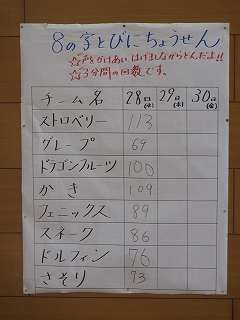 8の字とびにちょうせん
☆声をかけあい はげましながらとんだよ!!
☆3分間の回数です。
チーム名 28日(水) 29日(木) 30日(金)
ストロベリー 113
グレープ 69
ドラゴンフルーツ 100
かき 109
フェニックス 89
スネーク 86
ドルフィン 76
さそり 73